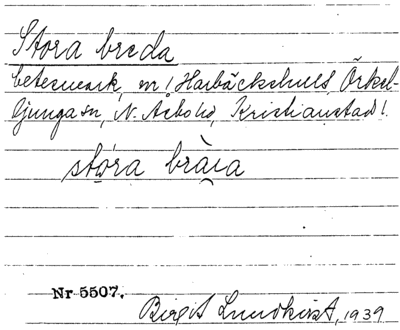 Stora breda
betesmark, m! Harbäckshult, Örkel-
ljunga sn, N. Åsbo hd, Kristianstad l.
stóra brè̱a
Nr 5507.
Birgit Lundkvist, 1939